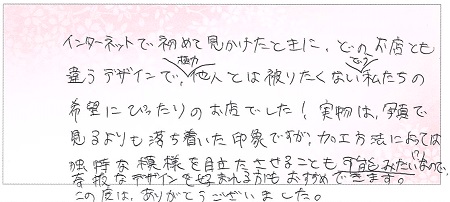 インターネットで初めて見かけたときに、どのお店とも
違うデザインで、極力他人とは被りたくないという私たちの
希望にぴったりのお店でした！実物は、写真で
見るよりも落ち着いた印象ですが、加工方法によっては
独特な模様を目立たせることも可能みたいなので、
奇抜なデザインを好まれる方もおすすめできます。
この度は、ありがとうございました。